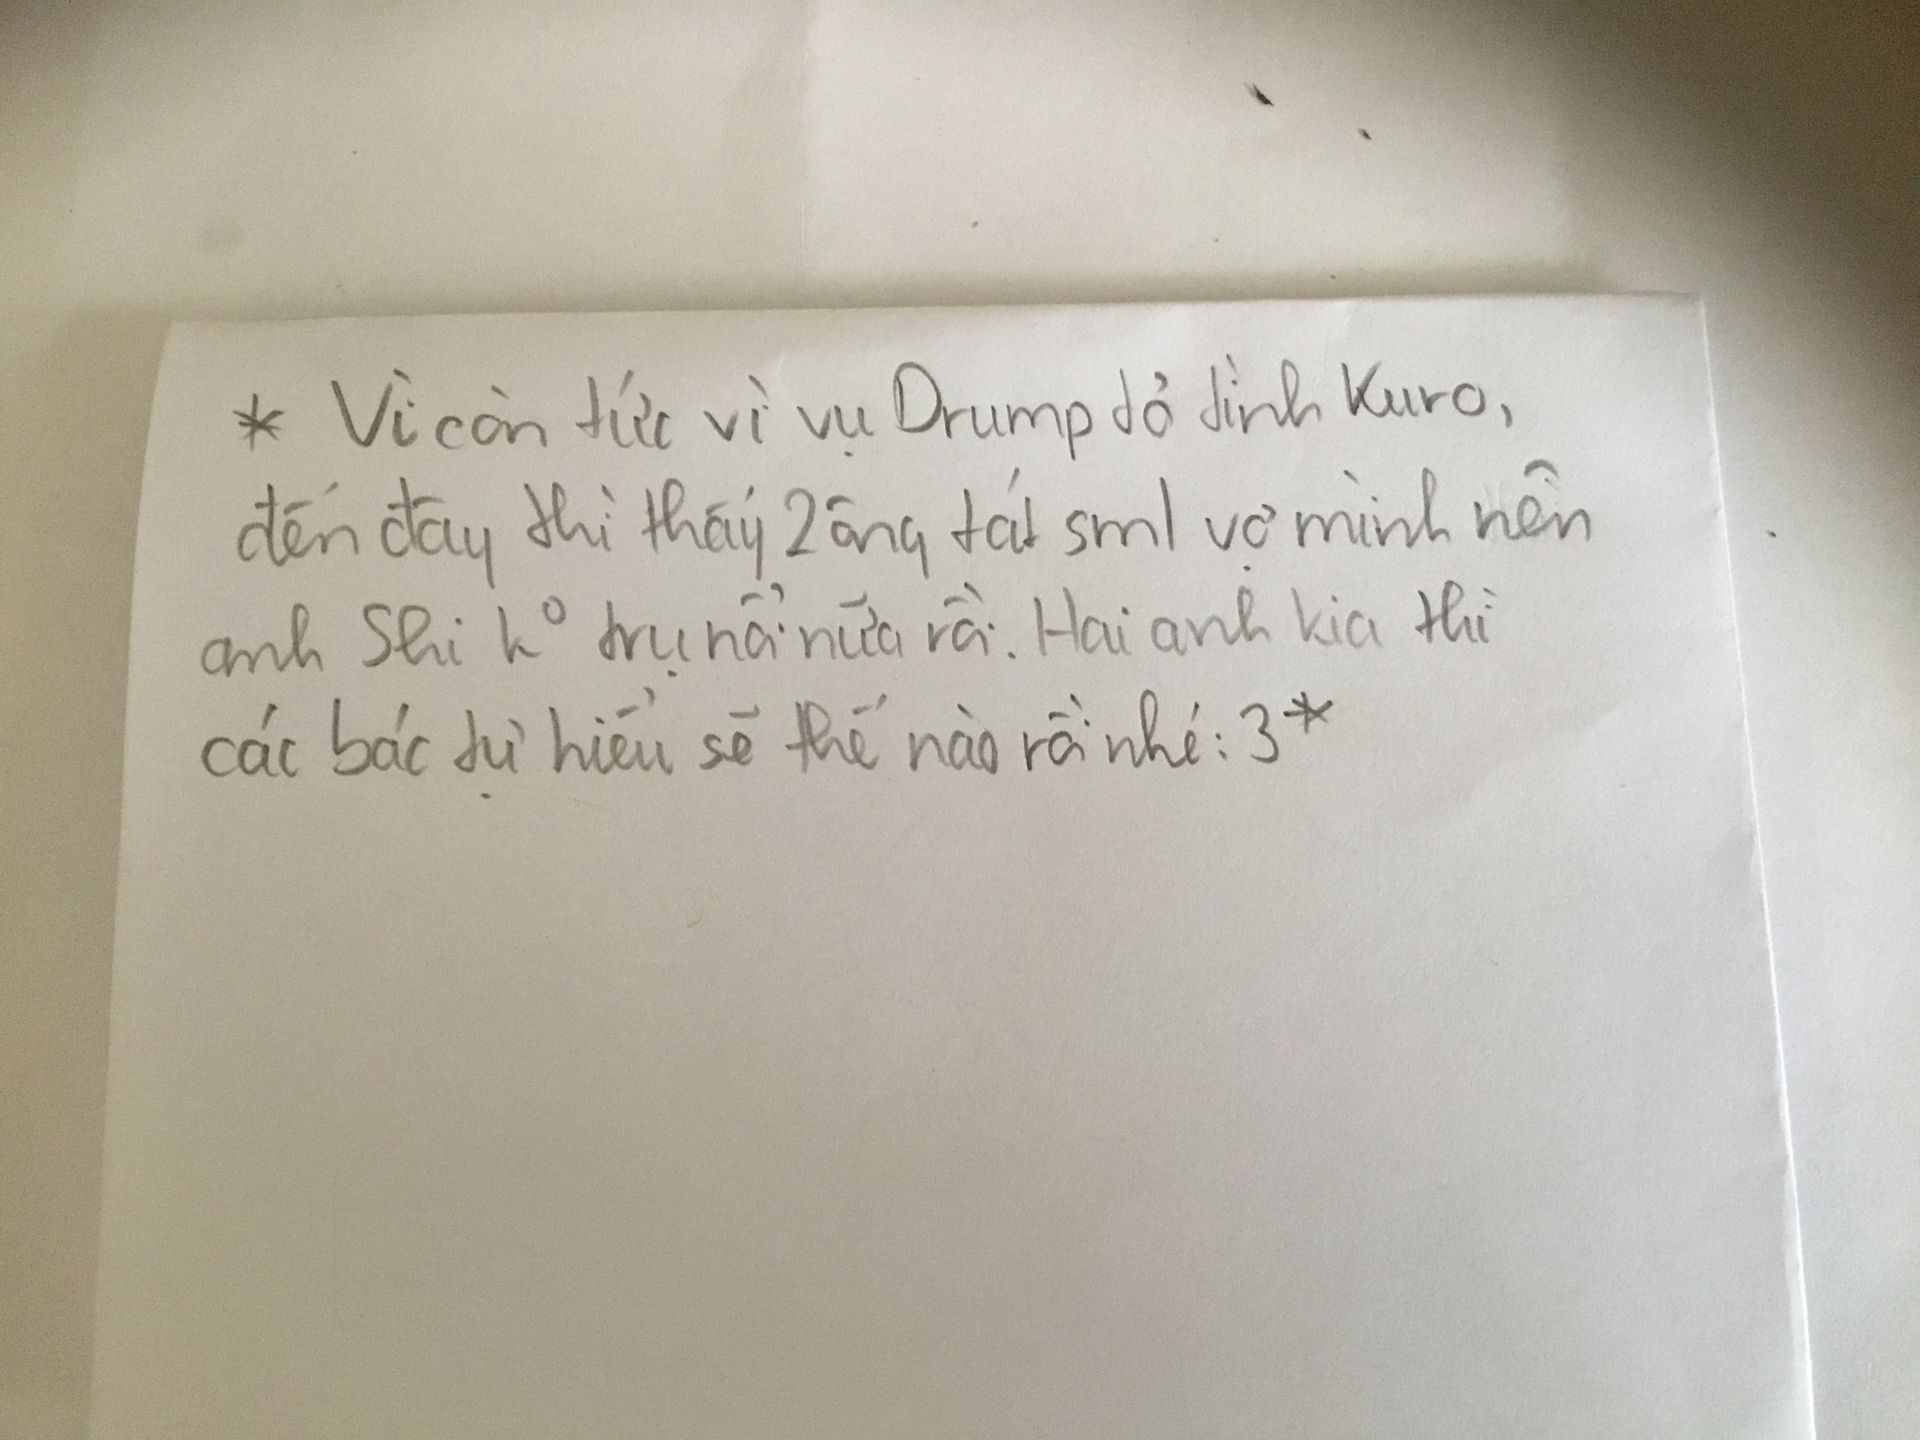 * Vì còn tức vì vụ Drump tỏ tình Kuro,
đến đây thì thấy 2 ông tát sml vợ mình nên
anh Shi k° trụ nổi nữa rồi. Hai anh kia thì
các bác tự hiểu sẽ thế nào rồi nhé :3 *